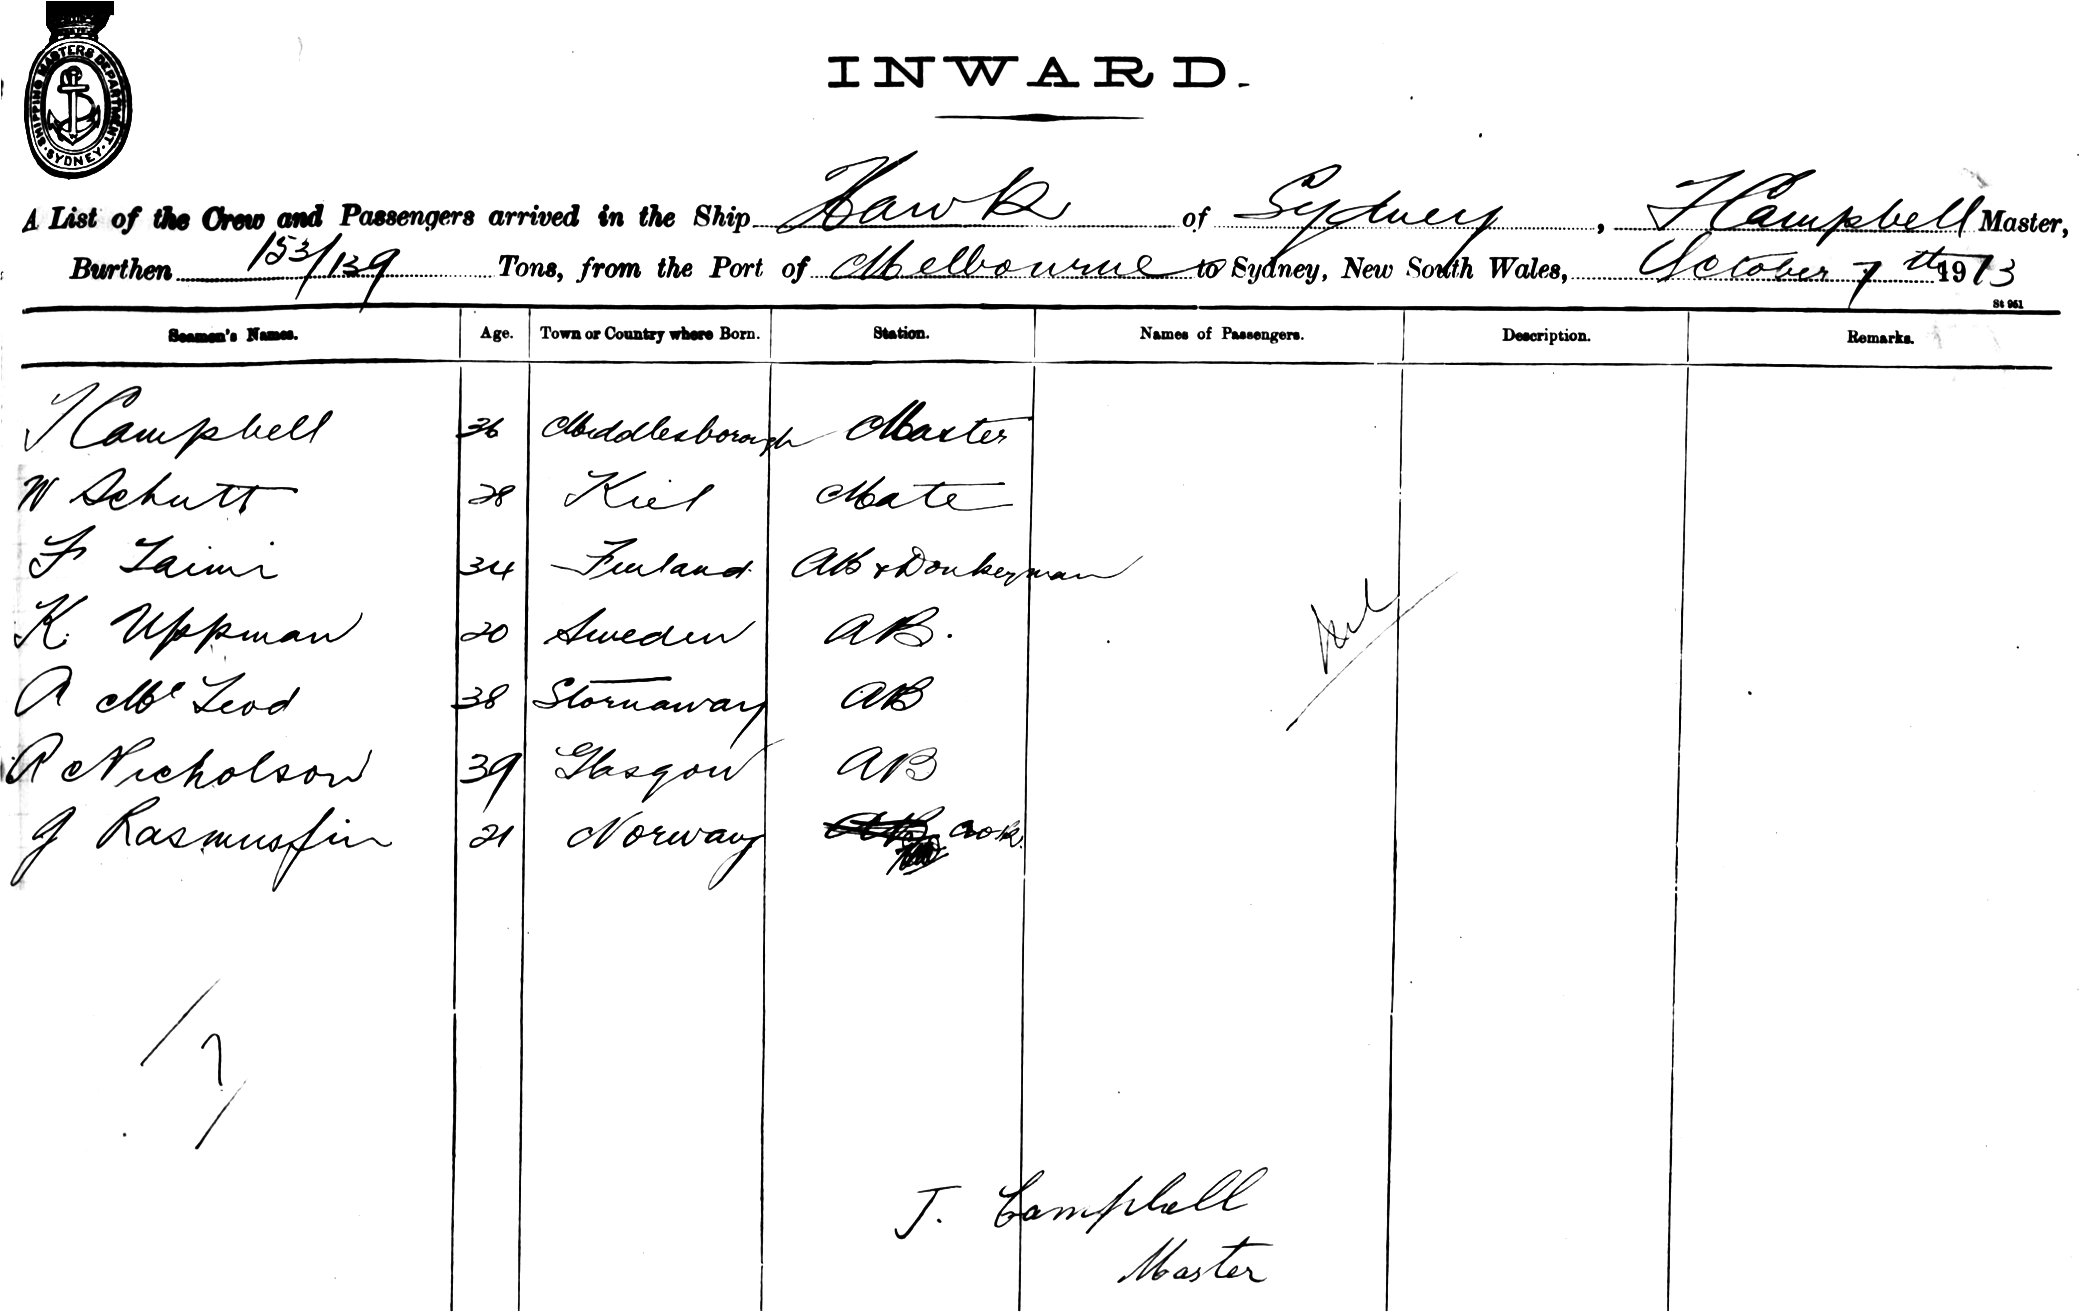 SHIPPING MASTERS DEPARTMENT
SYDNEY
INWARD.
A List of the Crew and Passengers arrived in the Ship Hawk of Sydney, J Campbell Master,
Burthen 153/139 Tons, from the Port of Melbourne to Sydney, New South Wales, October 7th 1913
St 951
Seamen's Names. Age. Town or Country where Born. Station. Names of Passengers. Description. Remarks.
J Campbell 36 Middlesborough Master
W Schutt 28 Kiel Mate
F Laimi 34 Finland AB & Donkeyman
K. Uppman 20 Sweden AB.
Nil
A McLeod 38 Stornaway AB
A Nicholson 39 Glasgow AB
G Rasmussin 21 Norway AB cook.
7
J. Campbell
Master